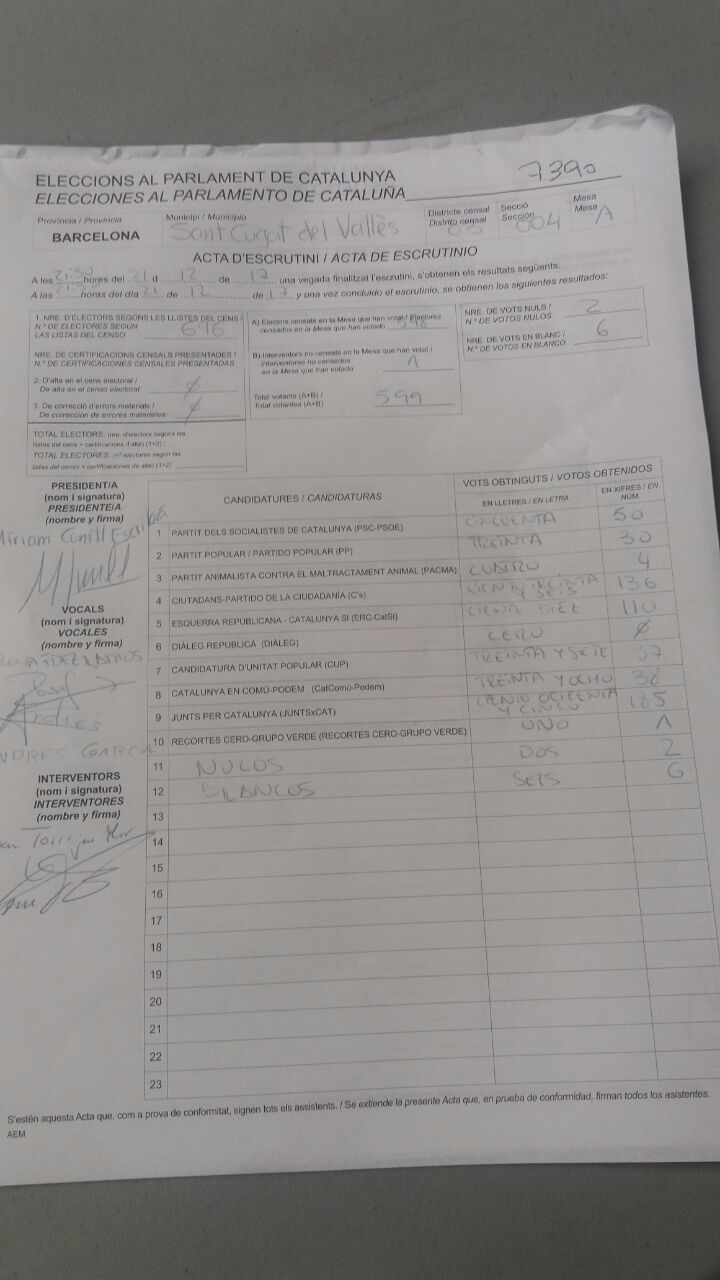 7390
ELECCIONS AL PARLAMENT DE CATALUNYA
ELECCIONES AL PARLAMENTO DE CATALUÑA
Província / Provincia
BARCELONA
Municipi / Municipio
Sant Cugat del Vallès
Districte censal
Distrito censal
03
Secció
Sección
004
Mesa
Mesa
A
ACTA D'ESCRUTINI / ACTA DE ESCRUTINIO
A les 21:50 hores del 21 d 12 de 17, una vegada finalitzat l'escrutini, s'obtenen els resultats següents:
A las 21:50 horas del día 21 de 12 de 17, y una vez concluido el escrutinio, se obtienen los siguientes resultados:
1. NRE. D'ELECTORS SEGONS LES LLISTES DEL CENS /
N.º DE ELECTORES SEGÚN
LAS LISTAS DEL CENSO
696
NRE. DE CERTIFICACIONS CENSALS PRESENTADES /
N.º CERTIFICACIONES CENSALES PRESENTADAS
2. D'alta en el cens electoral /
De alta en el censo electoral:
ø
3. De correcció d'errors materials /
De corrección de errores materiales:
ø
TOTAL ELECTORS: (nre. d'electors segons les
llistes del cens + certificacions d'alta) (1+2) /
TOTAL ELECTORES: (nº electores según las
listas del censo + certificaciones de alta) (1+2)
A) Electors censats en la Mesa que han votat / Electores
censados en la Mesa que han votado
598
B) Interventors no censats en la Mesa que han votat /
Interventores no censados
en la Mesa que han votado
1
Total votants (A+B) /
Total votantes (A+B)
599
NRE. DE VOTS NULS /
N.º DE VOTOS NULOS
2
NRE. DE VOTS EN BLANC /
N.º DE VOTOS EN BLANCO
6
PRESIDENT/A
(nom i signatura)
PRESIDENTE/A
(nombre y firma)
Miriam Cunill Escribà
VOCALS
(nom i signatura)
VOCALES
(nombre y firma)
ANDRES GARCIA
INTERVENTORS
(nom i signatura)
INTERVENTORES
(nombre y firma)
CANDIDATURES / CANDIDATURAS
VOTS OBTINGUTS / VOTOS OBTENIDOS
EN LLETRES / EN LETRA
EN XIFRES / EN NÚM.
1 PARTIT DELS SOCIALISTES DE CATALUNYA (PSC-PSOE) CINCUENTA 50
2 PARTIT POPULAR / PARTIDO POPULAR (PP) TREINTA 30
3 PARTIT ANIMALISTA CONTRA EL MALTRACTAMENT ANIMAL (PACMA) CUATRO 4
4 CIUTADANS-PARTIDO DE LA CIUDADANÍA (C's) CIENTO TREINTA Y SEIS 136
5 ESQUERRA REPUBLICANA - CATALUNYA SI (ERC-CatSí) CIENTO DIEZ 110
6 DIÀLEG REPUBLICÀ (DIÀLEG) CERO ø
7 CANDIDATURA D'UNITAT POPULAR (CUP) TREINTA Y SIETE 37
8 CATALUNYA EN COMÚ-PODEM (CatComú-Podem) TREINTA Y OCHO 38
9 JUNTS PER CATALUNYA (JUNTSxCAT) CIENTO OCHENTA Y CINCO 185
10 RECORTES CERO-GRUPO VERDE (RECORTES CERO-GRUPO VERDE) UNO 1
11 NULOS DOS 2
12 BLANCOS SEIS 6
13
14
15
16
17
18
19
20
21
22
23
S'estén aquesta Acta que, com a prova de conformitat, signen tots els assistents. / Se extiende la presente Acta que, en prueba de conformidad, firman todos los asistentes.
AEM